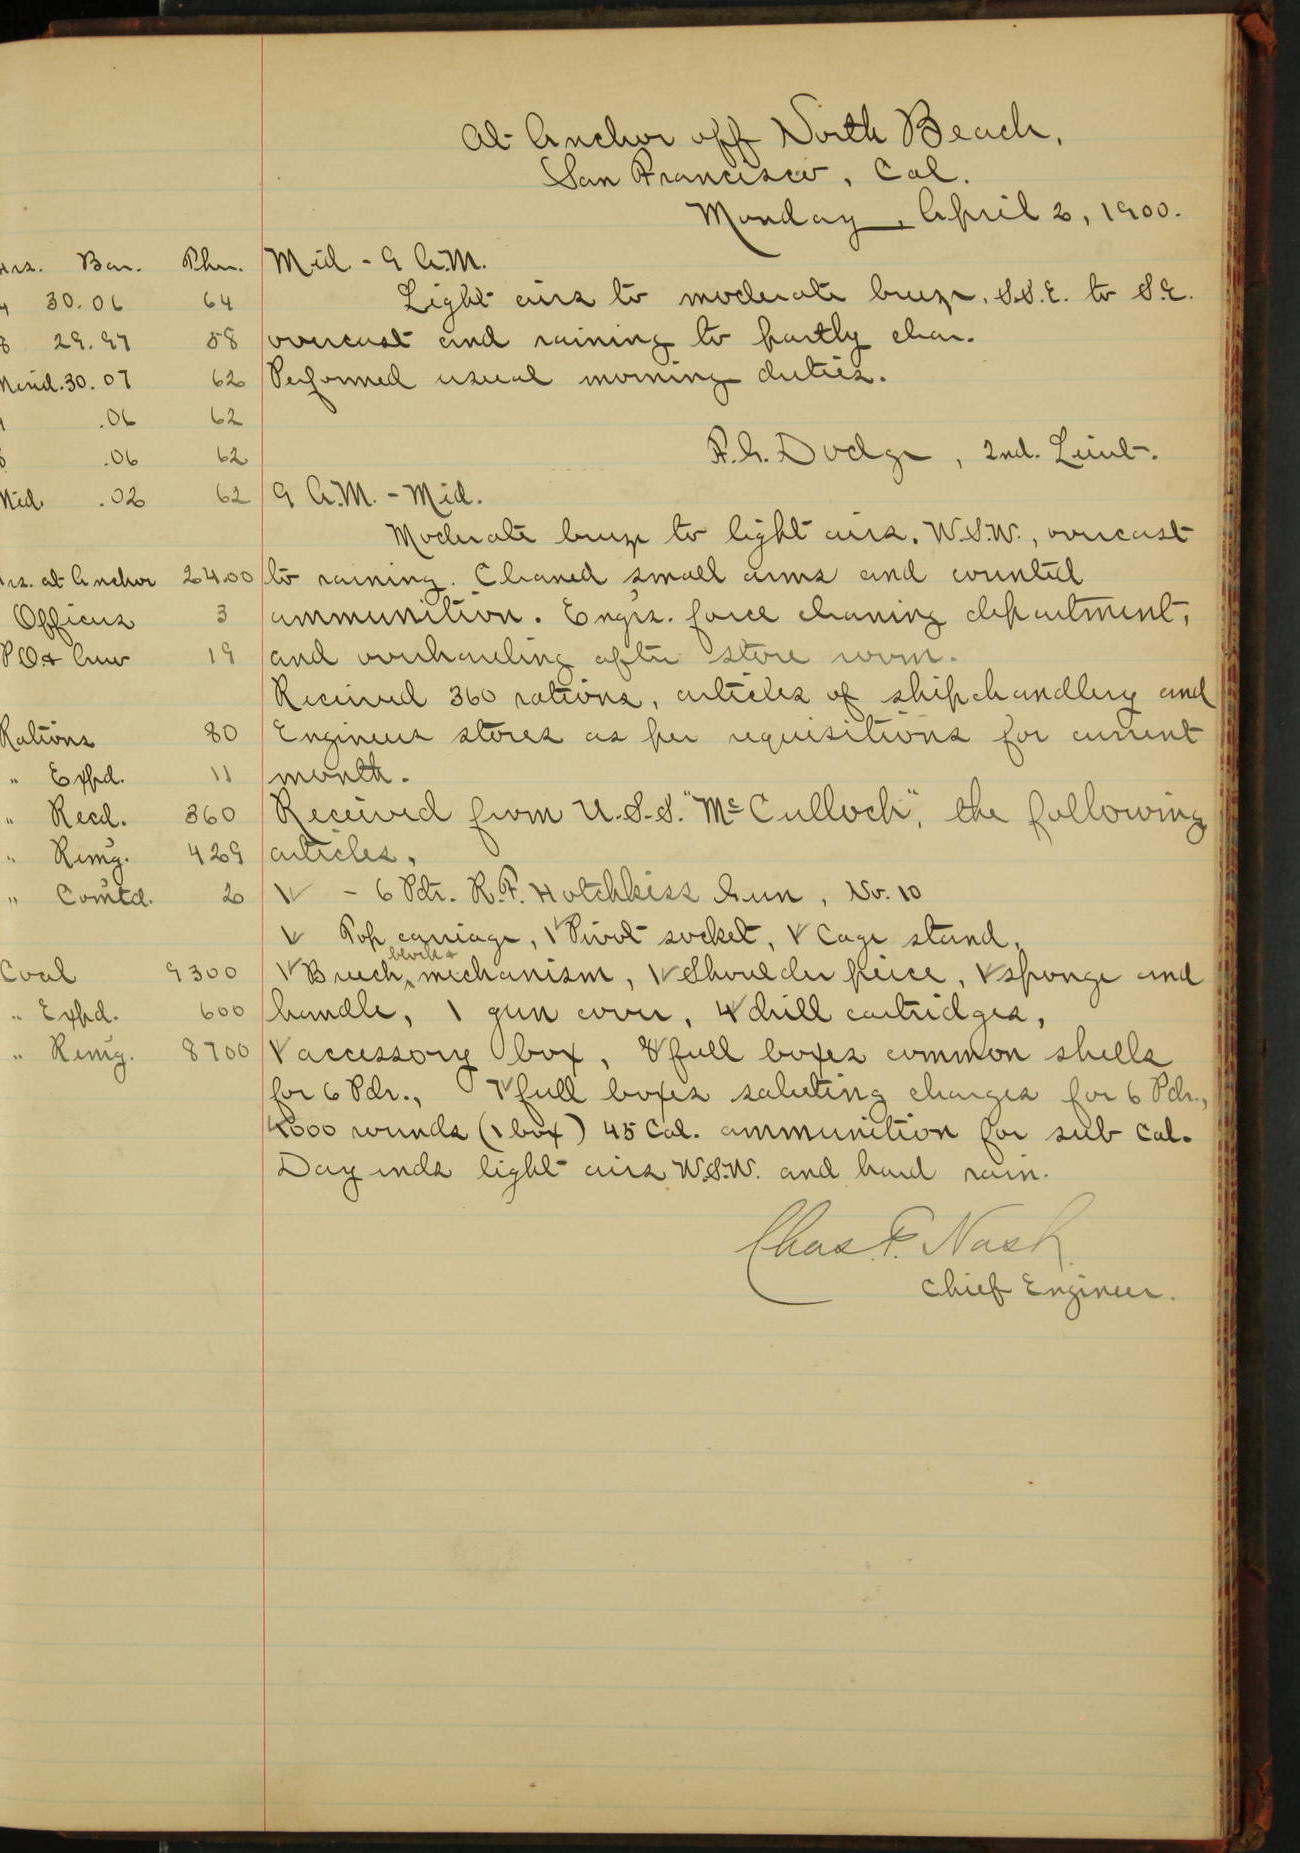 At Anchor off North Beach,
San Francisco, Cal.
Monday, April 2, 1900.
Hrs. Bar. Ther.
4 30.06 64
8 29.97 58
Merid. 30.07 62
4 .06 62
8 .06 62
Mid .02 62
Hrs. at Anchor 24.00
Officers 3
P.O. & Crew 19
Rations 80
" Expd. 11
" Recd. 360
" Rem'g. 429
" Com'td. 2
Coal 9300
" Expd. 600
" Rem'g. 8700
Mid. - 9 A.M.
Light airs to moderate breeze, S.S.E. to S.E.
overcast and raining to partly clear.
Performed usual morning duties.
F.G. Dodge, 2nd. Lieut.
9 A.M. - Mid.
Moderate breeze to light airs. W.S.W., overcast
to raining. Cleaned small arms and counted
ammunition. Eng'rs. force cleaning department,
and overhauling after store room.
Received 360 rations, articles of shipchandlery and
Engineer stores as per requisitions for current
month.
Received from U.S.S. "McCulloch", the following
articles,
1✓ - 6 Pdr. R.F. Hotchkiss Gun, No. 10
1✓ Top carriage, 1✓ Pivot socket, 1✓ Cage stand,
1✓ Breech block & mechanism, 1✓ Shoulder peice, 1✓ sponge and
handle, 1 gun cover, 4✓ drill cartridges,
1✓ accessory box, 8✓ full boxes common shells
for 6 Pdr., 7✓ full boxes saluting charges for 6 Pdr.,
1000 rounds (1 box) 45 Cal. ammunition for sub cal.
Day ends light airs W.S.W. and hard rain.
Chas. F. Nash
Chief Engineer.